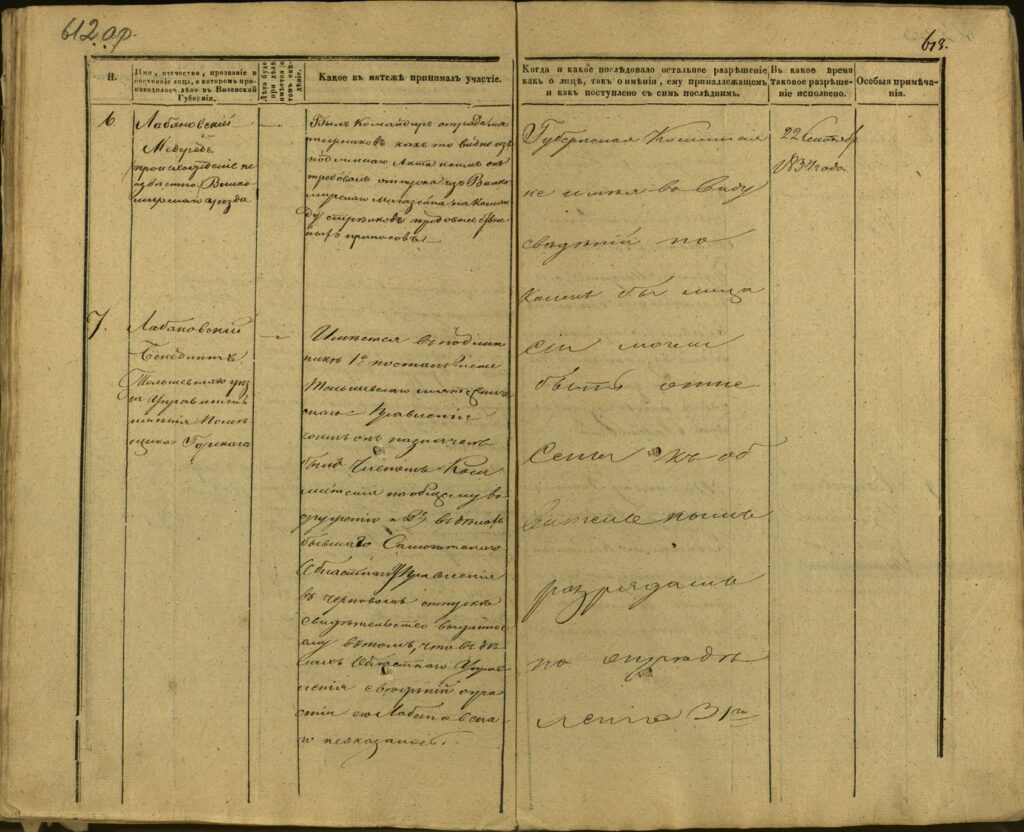 612 ар.
613.
Н.
Имя, отечество, прозваніе и
состояніе лица, о которомъ про-
изводилось дѣло въ Виленской
Губерніи.
Какое въ мятежѣ принималъ участіе.
Когда и какое послѣдовало остальное разрѣшеніе
какъ о лицѣ, такъ о имѣніи, ему принадлежащемъ
и какъ поступлено съ симъ послѣднимъ.
Въ какое время
таковое разрѣше-
ніе исполнено.
Особыя примѣча-
нія.
6.
Лабановскій
происхожденіе не
извѣстно Вилко-
мирскаго уѣзда
Былъ Командиръ отряда
какъ то видно изъ
подлиннаго Акта коимъ онъ
требовалъ отпуска изъ Вилко-
мирскаго Магазейна на Коман-
ду стрѣлковъ продовольствен-
ныхъ припасовъ
Губернская Коммисія
не имѣя въ виду
свѣдѣній по
коимъ бы лица
сіи могли
быть отне
сены къ об
разрядамъ
по опредѣ
ленію 31го
22 Сентября
1834 года
7.
Лабановскій
Бенедиктъ
Тельшевскаго уѣз
да Управитель
имѣнія Помѣ
щика Гурскаго
Имѣется въ подлин
никѣ 1е постановленіе
Тельшевскаго мятежниче
скаго Правленія
коимъ онъ назначенъ
былъ Членомъ Ком
митета по общему во
оруженію и 2е въ дѣлахъ
бывшаго Самогитскаго
Областнаго Правленія
въ черновомъ отпускѣ
свидѣтельство выданное
ему въ томъ, что въ дѣ
лахъ Областнаго Управ
ленія